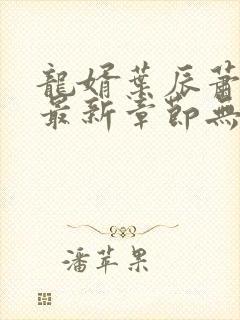 龍婿葉辰蕭
最新章節無
潘苹果